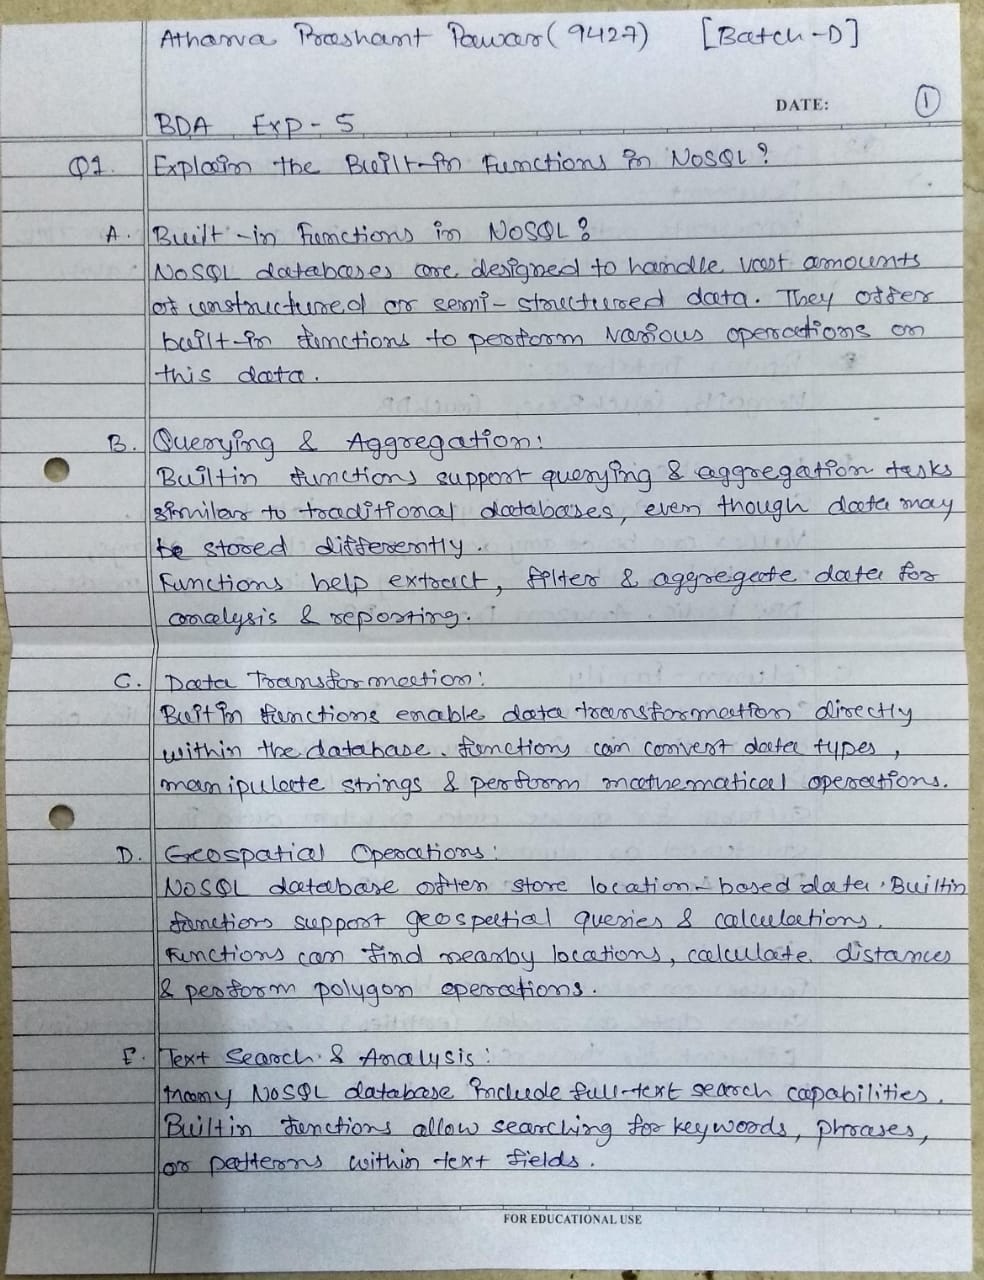 Atharva Prashant Pawar (9427) [Batch-D]
DATE: 1
BDA Exp-5
Q1. Explain the Built-in Functions in NoSQL?
A. Built-in Functions in NoSQL?
NoSQL databases are designed to handle vast amounts
of unstructured or semi-structured data. They offer
built-in functions to perform various operations on
this data.
B. Querying & Aggregation:
Builtin functions support querying & aggregation tasks
similar to traditional databases, even though data may
be stored differently.
Functions help extract, filter & aggregate data for
analysis & reporting.
C. Data Transformation:
Builtin functions enable data transformation directly
within the database. functions can convert data types,
manipulate strings & perform mathematical operations.
D. Geospatial Operations:
NoSQL database often store location-based data. Builtin
functions support geospatial queries & calculations.
Functions can find nearby locations, calculate distances
& perform polygon operations.
E. Text Search & Analysis:
Many NoSQL database include full-text search capabilities.
Builtin functions allow searching for keywords, phrases,
or patterns within text fields.
FOR EDUCATIONAL USE